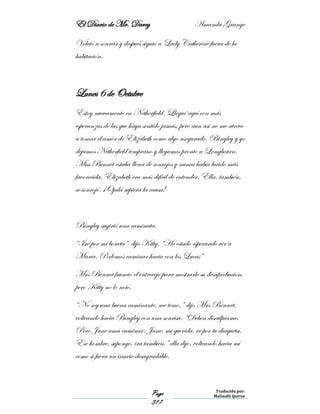 El Diario de Mr. Darcy Amanda Grange
Volvió a sonreír y después siguió a Lady Catherine fuera de la
habitación.
Lunes 6 de Octubre
Estoy nuevamente en Netherfield. Llegué aquí con más
esperanzas de las que haya sentido jamás, pero aun así no me atrevo
a tomar el amor de Elizabeth como algo asegurado. Bingley y yo
dejamos Netherfield temprano y llegamos pronto a Longbourn.
Miss Bennet estaba llena de sonrojos y nunca había lucido más
favorecida. Elizabeth era más difícil de entender. Ella, también,
se sonrojó. ¡Ojalá supiera la causa!
Bingley sugirió una caminata.
“Iré por mi boneta” dijo Kitty. “He estado esperando ver a
María. Podemos caminar hacia con los Lucas”
Mrs Bennet frunció el entrecejo para mostrarle su desaprobación,
pero Kitty no lo notó.
“No soy una buena caminante, me temo,” dijo Mrs Bennet,
volteando hacia Bingley con una sonrisa. “Deben disculparme.
Pero Jane ama caminar. Jane, mi querida, ve por tu chaqueta.
Ese hombre, supongo, irá también,” ella dijo, volteando hacia mí
como si fuera un insecto desagradable.
Page
317
Traducido por:
Malinalli Quiroz